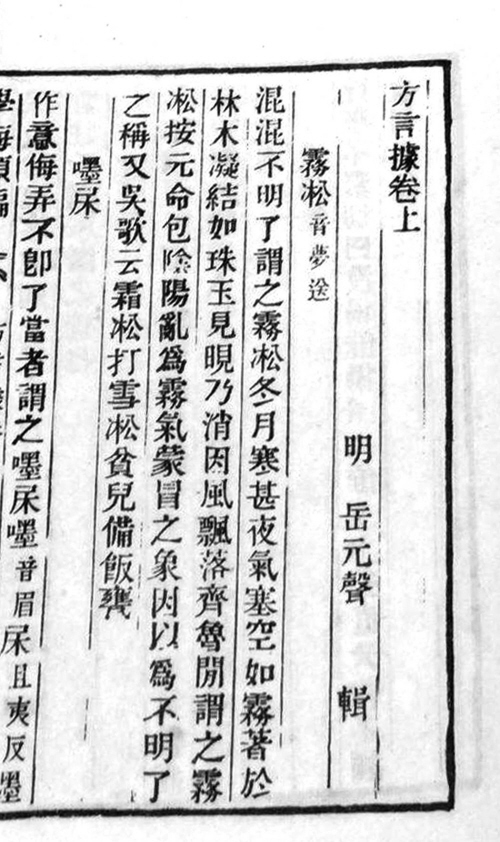 方言據卷上
明 岳元聲 輯
霧凇音夢送
混混不明了謂之霧凇冬月寒甚夜氣塞空如霧著於
林木凝結如珠玉見晛乃消因風飄落齊魯閒謂之霧
凇按元命包陰陽亂為霧氣蒙冒之象因以為不明了
之稱又吳歌云霜凇打雪凇貧兒備飯甕
嚜尿
作意侮弄不卽了當者謂之嚜尿嚜音眉尿且夷反嚜
學海類編